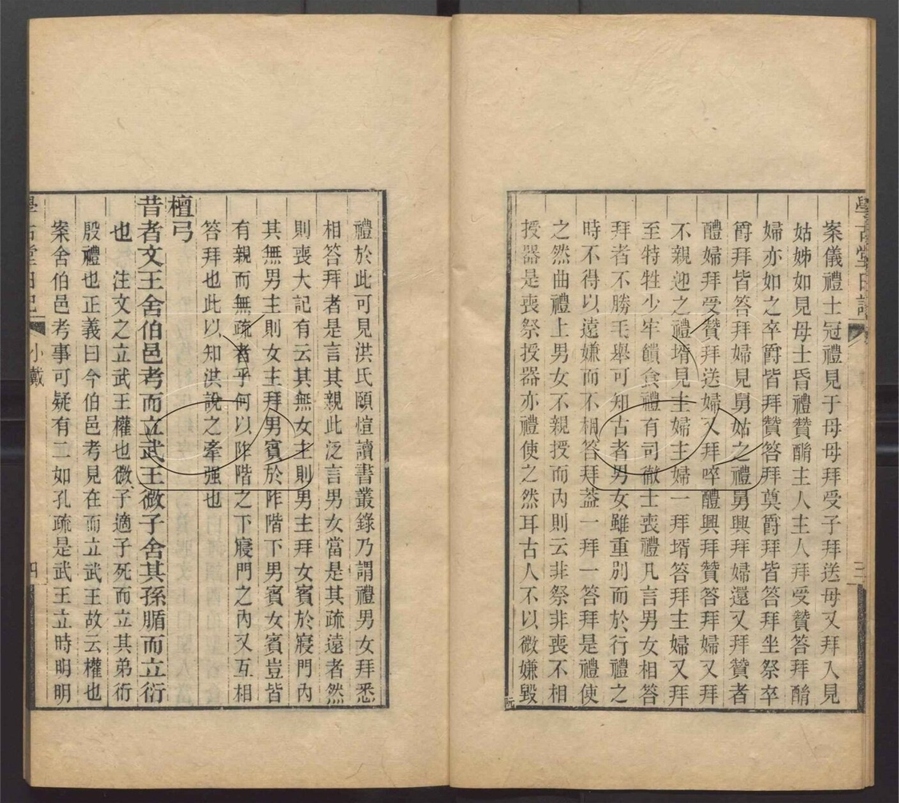 案儀禮士冠禮見于母母拜受子拜送母又拜入見
姑姊如見母士昏禮贊酳主人主人拜受贊答拜酳
婦亦如之卒爵皆拜贊答拜奠爵拜皆答拜坐祭卒
爵拜皆答拜婦見舅姑之禮舅興拜婦還又拜贊者
醴婦拜受贊拜送婦又拜啐醴興拜贊答拜婦又拜
不親迎之禮壻見主婦主婦一拜壻答拜主婦又拜
至特牲少牢饋食禮有司徹士喪禮凡言男女相答
拜者不勝毛舉可知古者男女雖重別而於行禮之
時不得以遠嫌而不相答拜葢一拜一答拜是禮使
之然曲禮上男女不親授而內則云非祭非喪不相
授器是喪祭授器亦禮使之然耳古人不以微嫌毀
禮於此可見洪氏頤煊讀書叢錄乃謂禮男女拜悉
相答拜者是言其親此泛言男女當是其疏遠者然
則喪大記有云其無女主則男主拜女賓於寢門內
其無男主則女主拜男賓於阼階下男賓女賓豈皆
有親而無疏者乎何以阼階之下寢門之內又互相
答拜也此以知洪說之牽强也
檀弓
昔者文王舍伯邑考而立武王微子舍其孫腯而立衍
也　注文之立武王權也微子適子死而立其弟衍
殷禮也正義曰今伯邑考見在而立武王故云權也
案舍伯邑考事可疑有二如孔疏是武王立時明明
學古堂日記　小戴　四